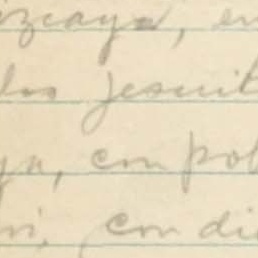 izcaya, en
los jesuit
ya, con pob
con di